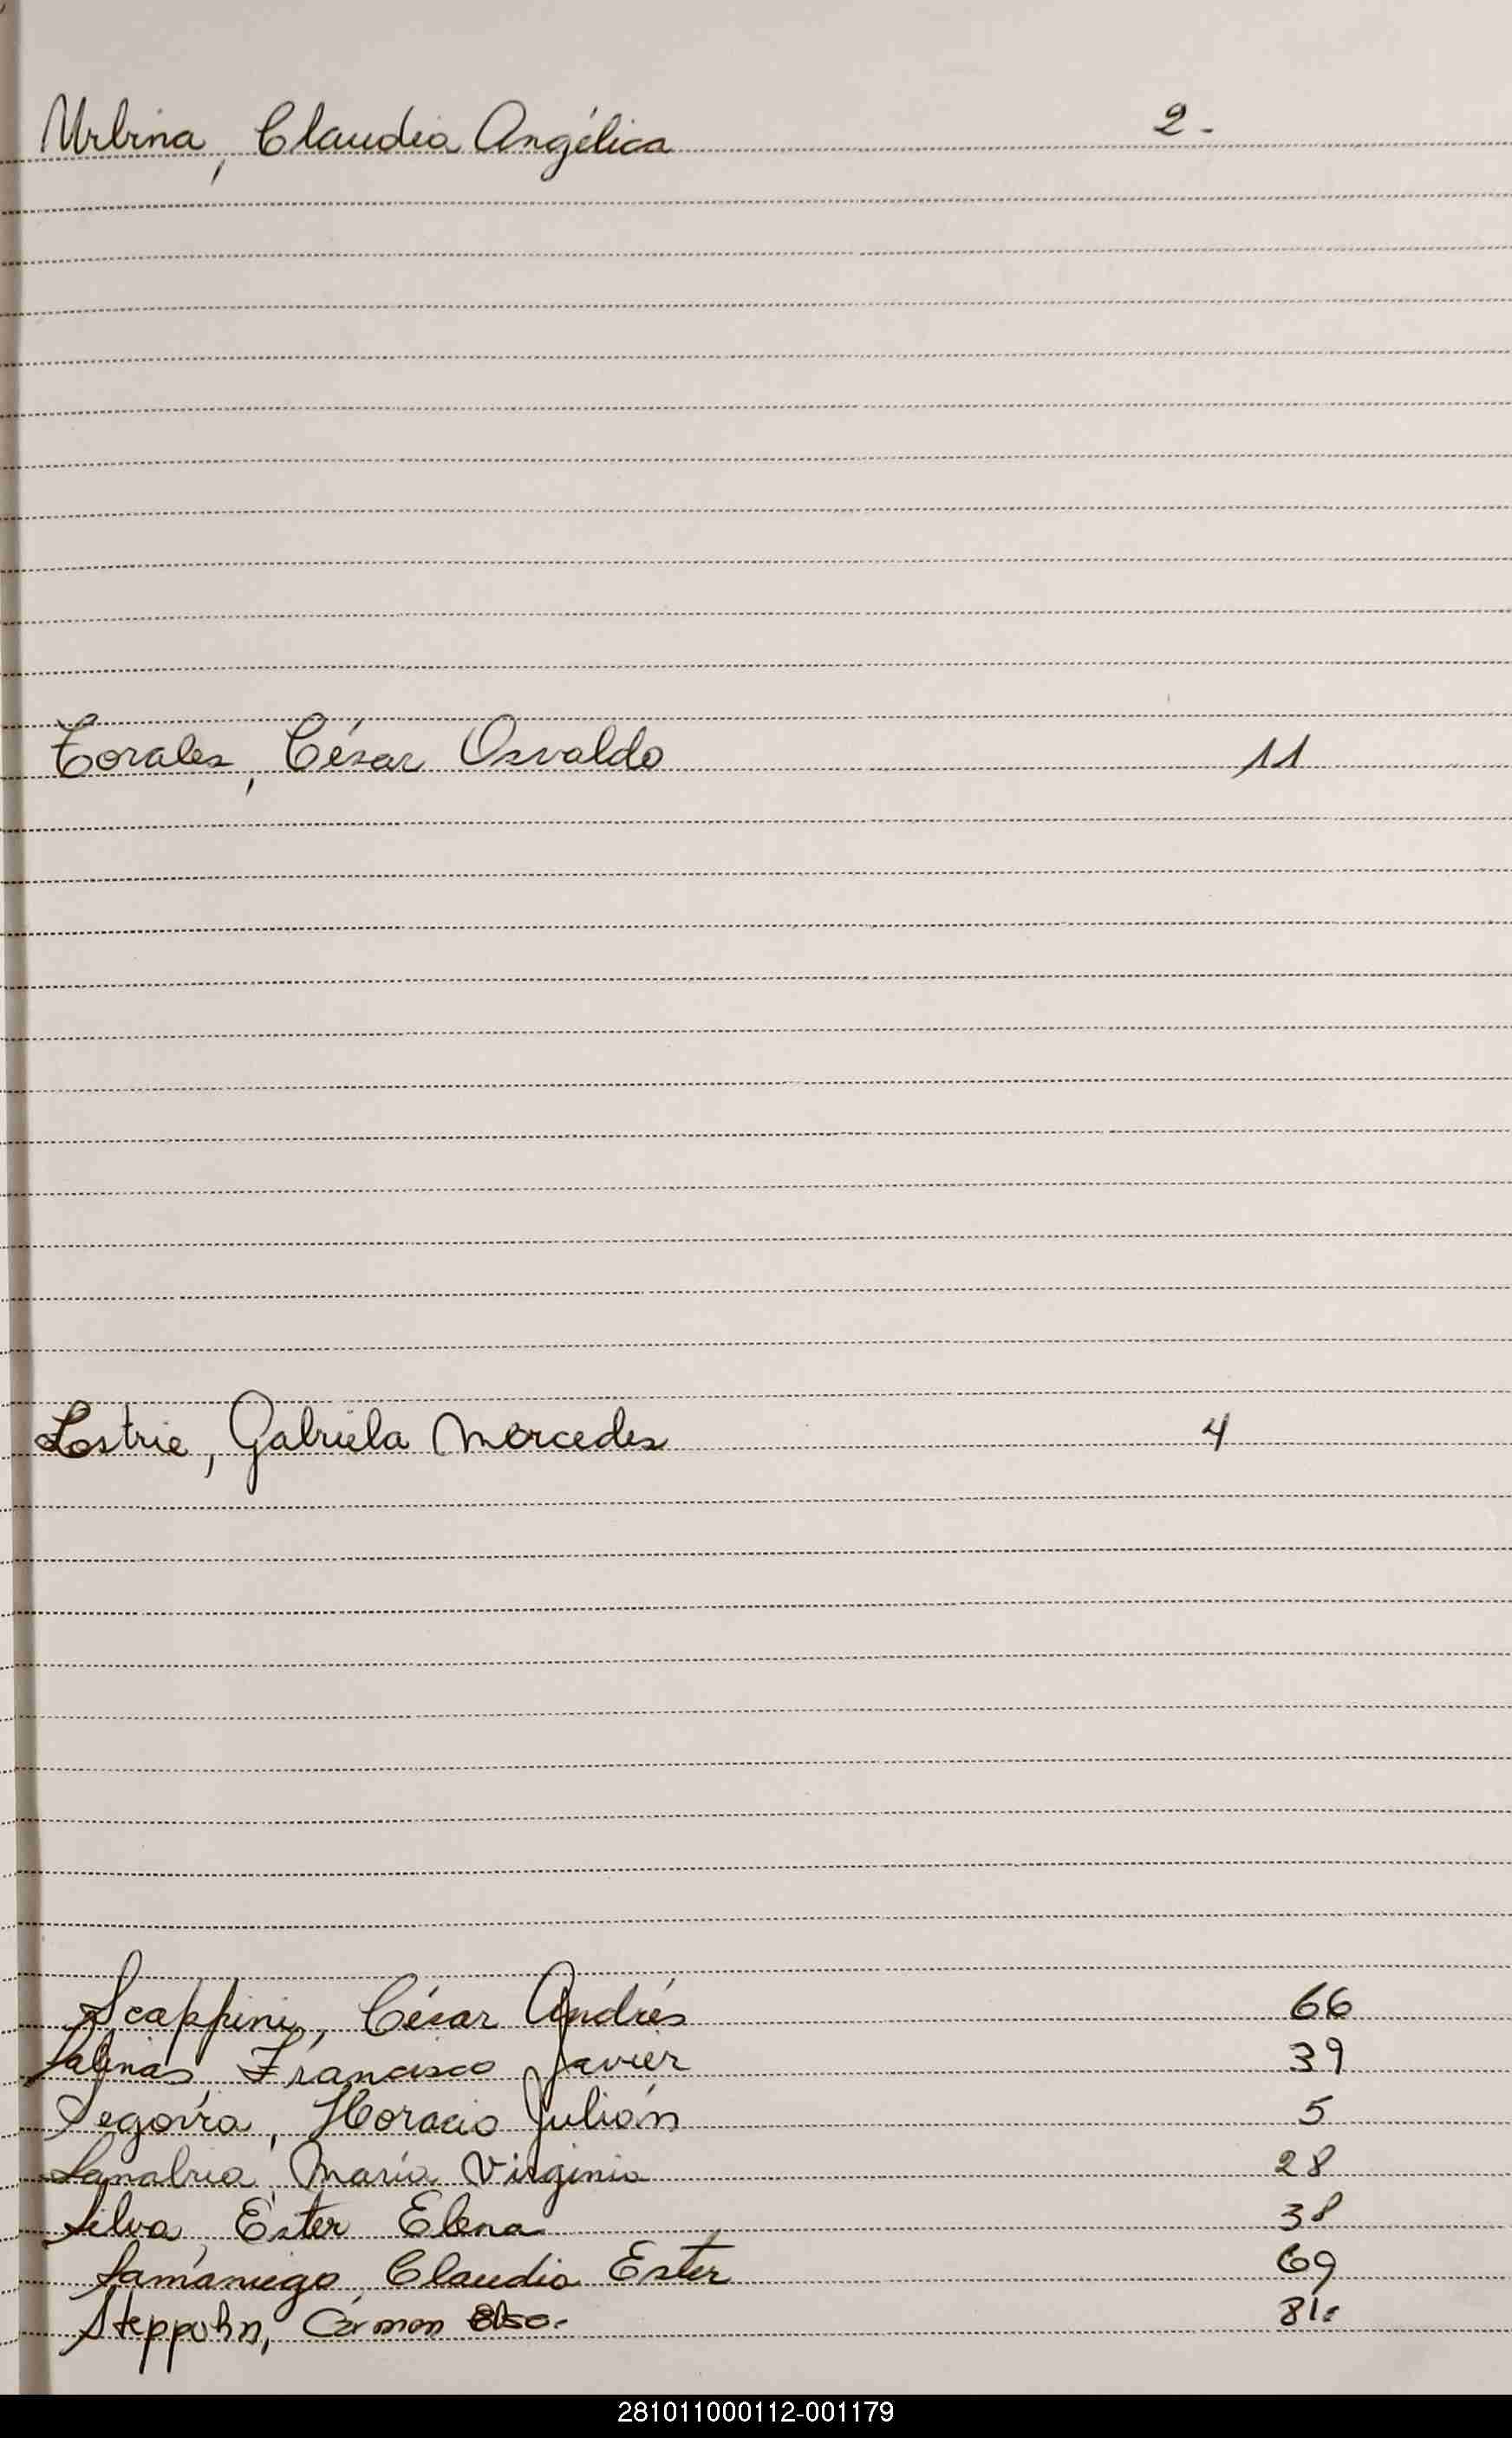 Urbina, Claudia Angélica 2-
Torales, César Osvaldo 11
Lostrie, Gabriela Mercedes 4
Scappini, César Andrés 66
Salinas, Francisco Javier 39
Segovia, Horacio Julián 5
Sanabria, María Virginia 28
Silva, Ester Elena 38
Samaniego, Claudia Ester 69
Steppuhn, Carmen Elsa. 81.
281011000112-001179